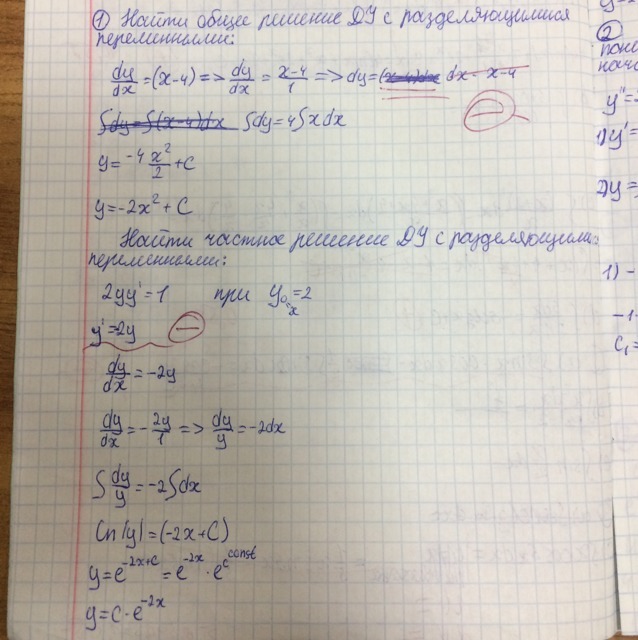 ① Найти общее решение ДУ с разделяющимися
переменными:
dy/dx = (x-4) => dy/dx = x-4/1 => dy = (x-4)dx dx - x-4
∫dy = ∫(x-4)dx ∫dy = 4∫xdx
y = -4 x²/2 + C
y = -2x² + C
Найти частное решение ДУ с разделяющими
переменными:
2yy' = 1 при y₀ = 2
x
y' = 2y
dy/dx = -2y
dy/dx = -2y/1 => dy/y = -2dx
∫dy/y = -2∫dx
ln|y| = (-2x+C)
y = e^-2x+c = e^-2x · e^c const
y = C · e^-2x
②
y''=
1)y'=
2)y=
1) -
-1.
C₁=